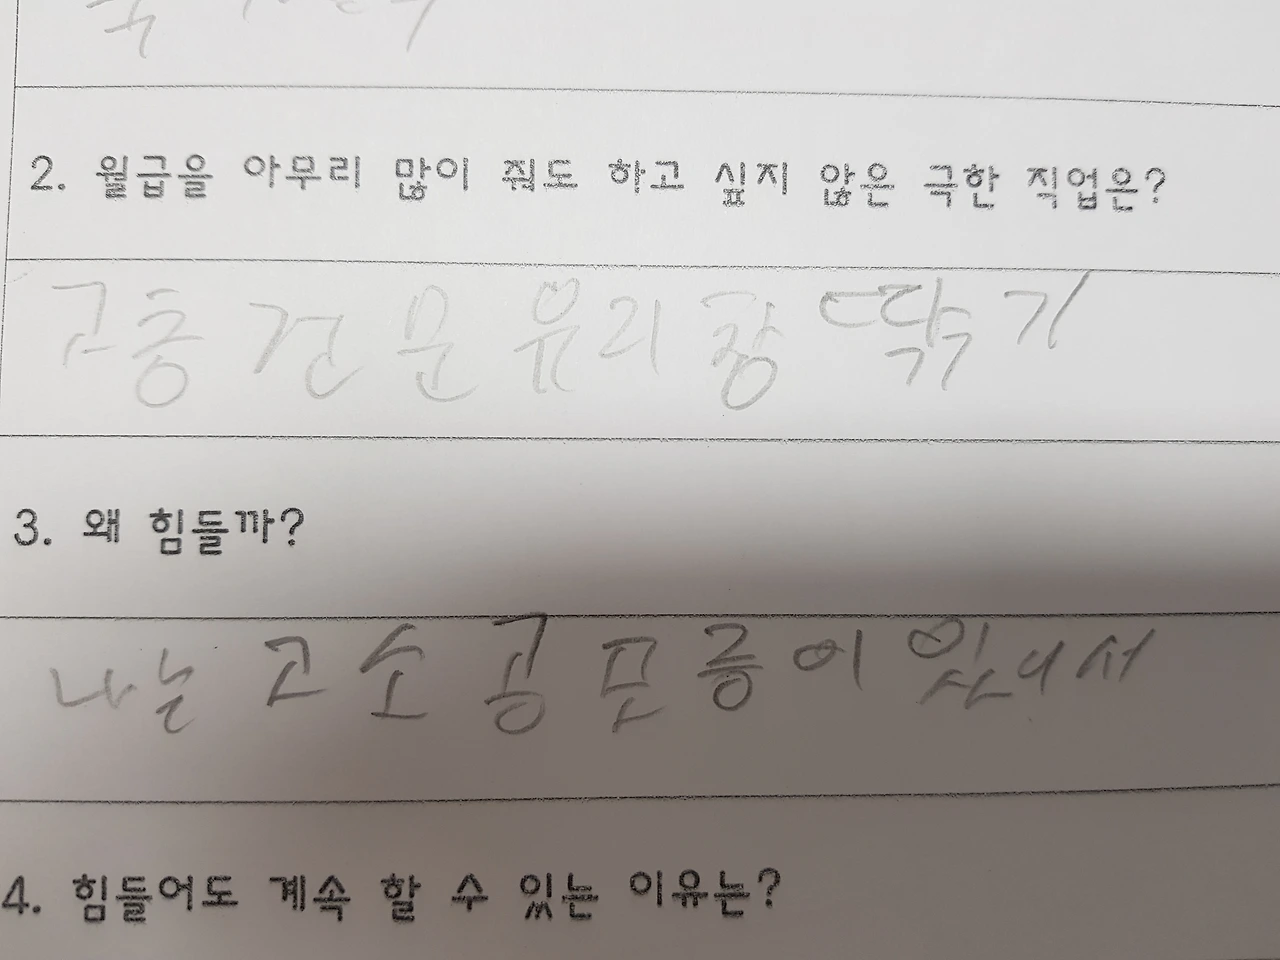 2. 월급을 아무리 많이 줘도 하고 싶지 않은 극한 직업은?
고층 건문 유리창 딱기
3. 왜 힘들까?
나는 고소공포증이 있어서
4. 힘들어도 계속 할 수 있는 이유는?